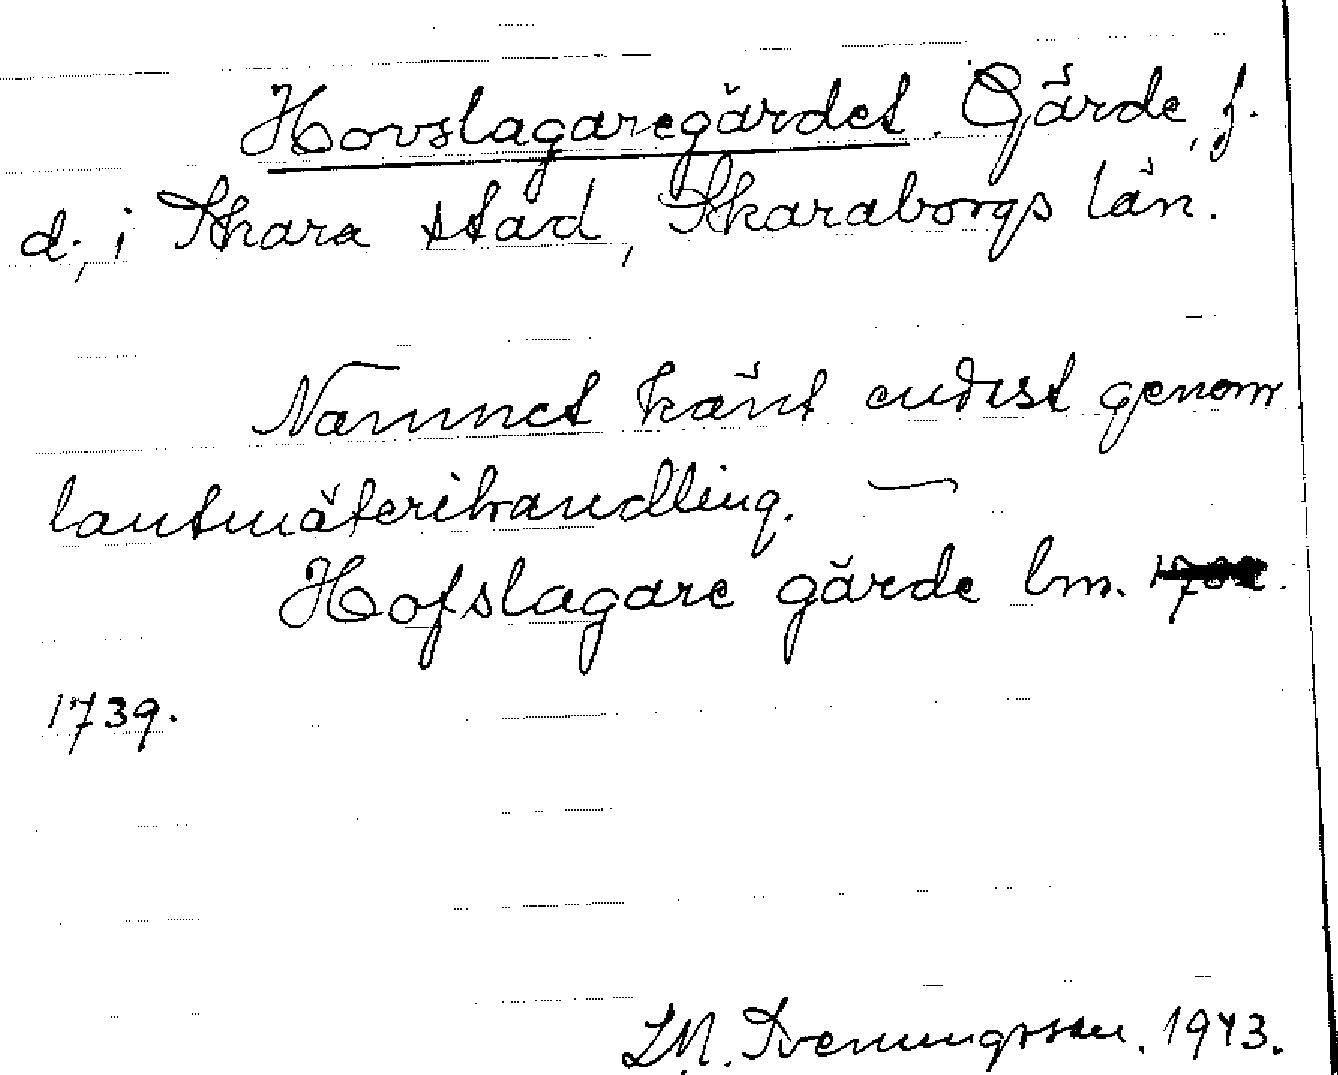 Hovslagaregärdet. Gärde, f.
d., i Skara stad, Skaraborgs län.
Namnet känt endast genom
lantmäterihandling. —
Hofslagare gärde lm.
1739.
Svenungsson. 1943.